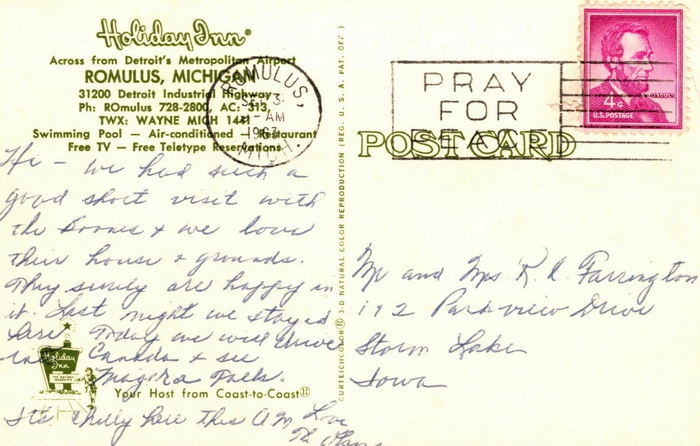 Holiday Inn®
Across from Detroit's Metropolitan Airport
ROMULUS, MICHIGAN
31200 Detroit Industrial Highway
Ph: ROmulus 728-2800, AC: 313,
TWX: WAYNE MICH 1441
Swimming Pool — Air-conditioned — Restaurant
Free TV — Free Teletype Reservations
Hi - We had such a
good short visit with
the Boones & we love
their house & grounds.
They surely are happy in
it. Last night we stayed
here. Today we will drive
into Canada & see
Niagra Falls.
It's chilly here this A.M. Love
The
Holiday Inn
Your Host from Coast-to-Coast®
CURTEICHCOLOR® 3-D NATURAL COLOR REPRODUCTION (REG. U. S. A. PAT. OFF.)
ROMULUS,
3
AM
1963
MICH.
PRAY
FOR
PEACE
POST CARD
LINCOLN
4¢
U.S. POSTAGE
Mr and Mrs. R. A. Farrington
192 Parkview Drive
Storm Lake
Iowa